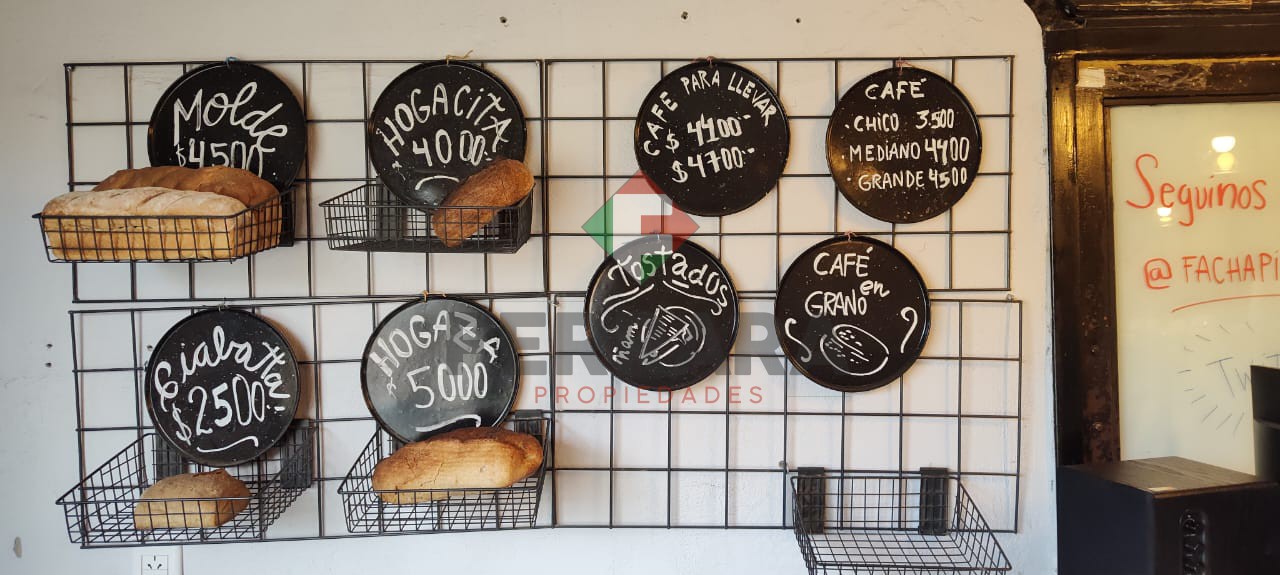 Molde
$4500
HOGACITA
4000.
CAFE PARA LLEVAR
$ 4100.-
$4700.-
CAFÉ
·CHICO 3.500
·MEDIANO 4400
·GRANDE 4500
Ciabatta!
$2500
HOGAZA
5000
TOSTADOS
ñam!
CAFÉ
en
GRANO
PROPIEDADES
Seguinos
@FACHAPI